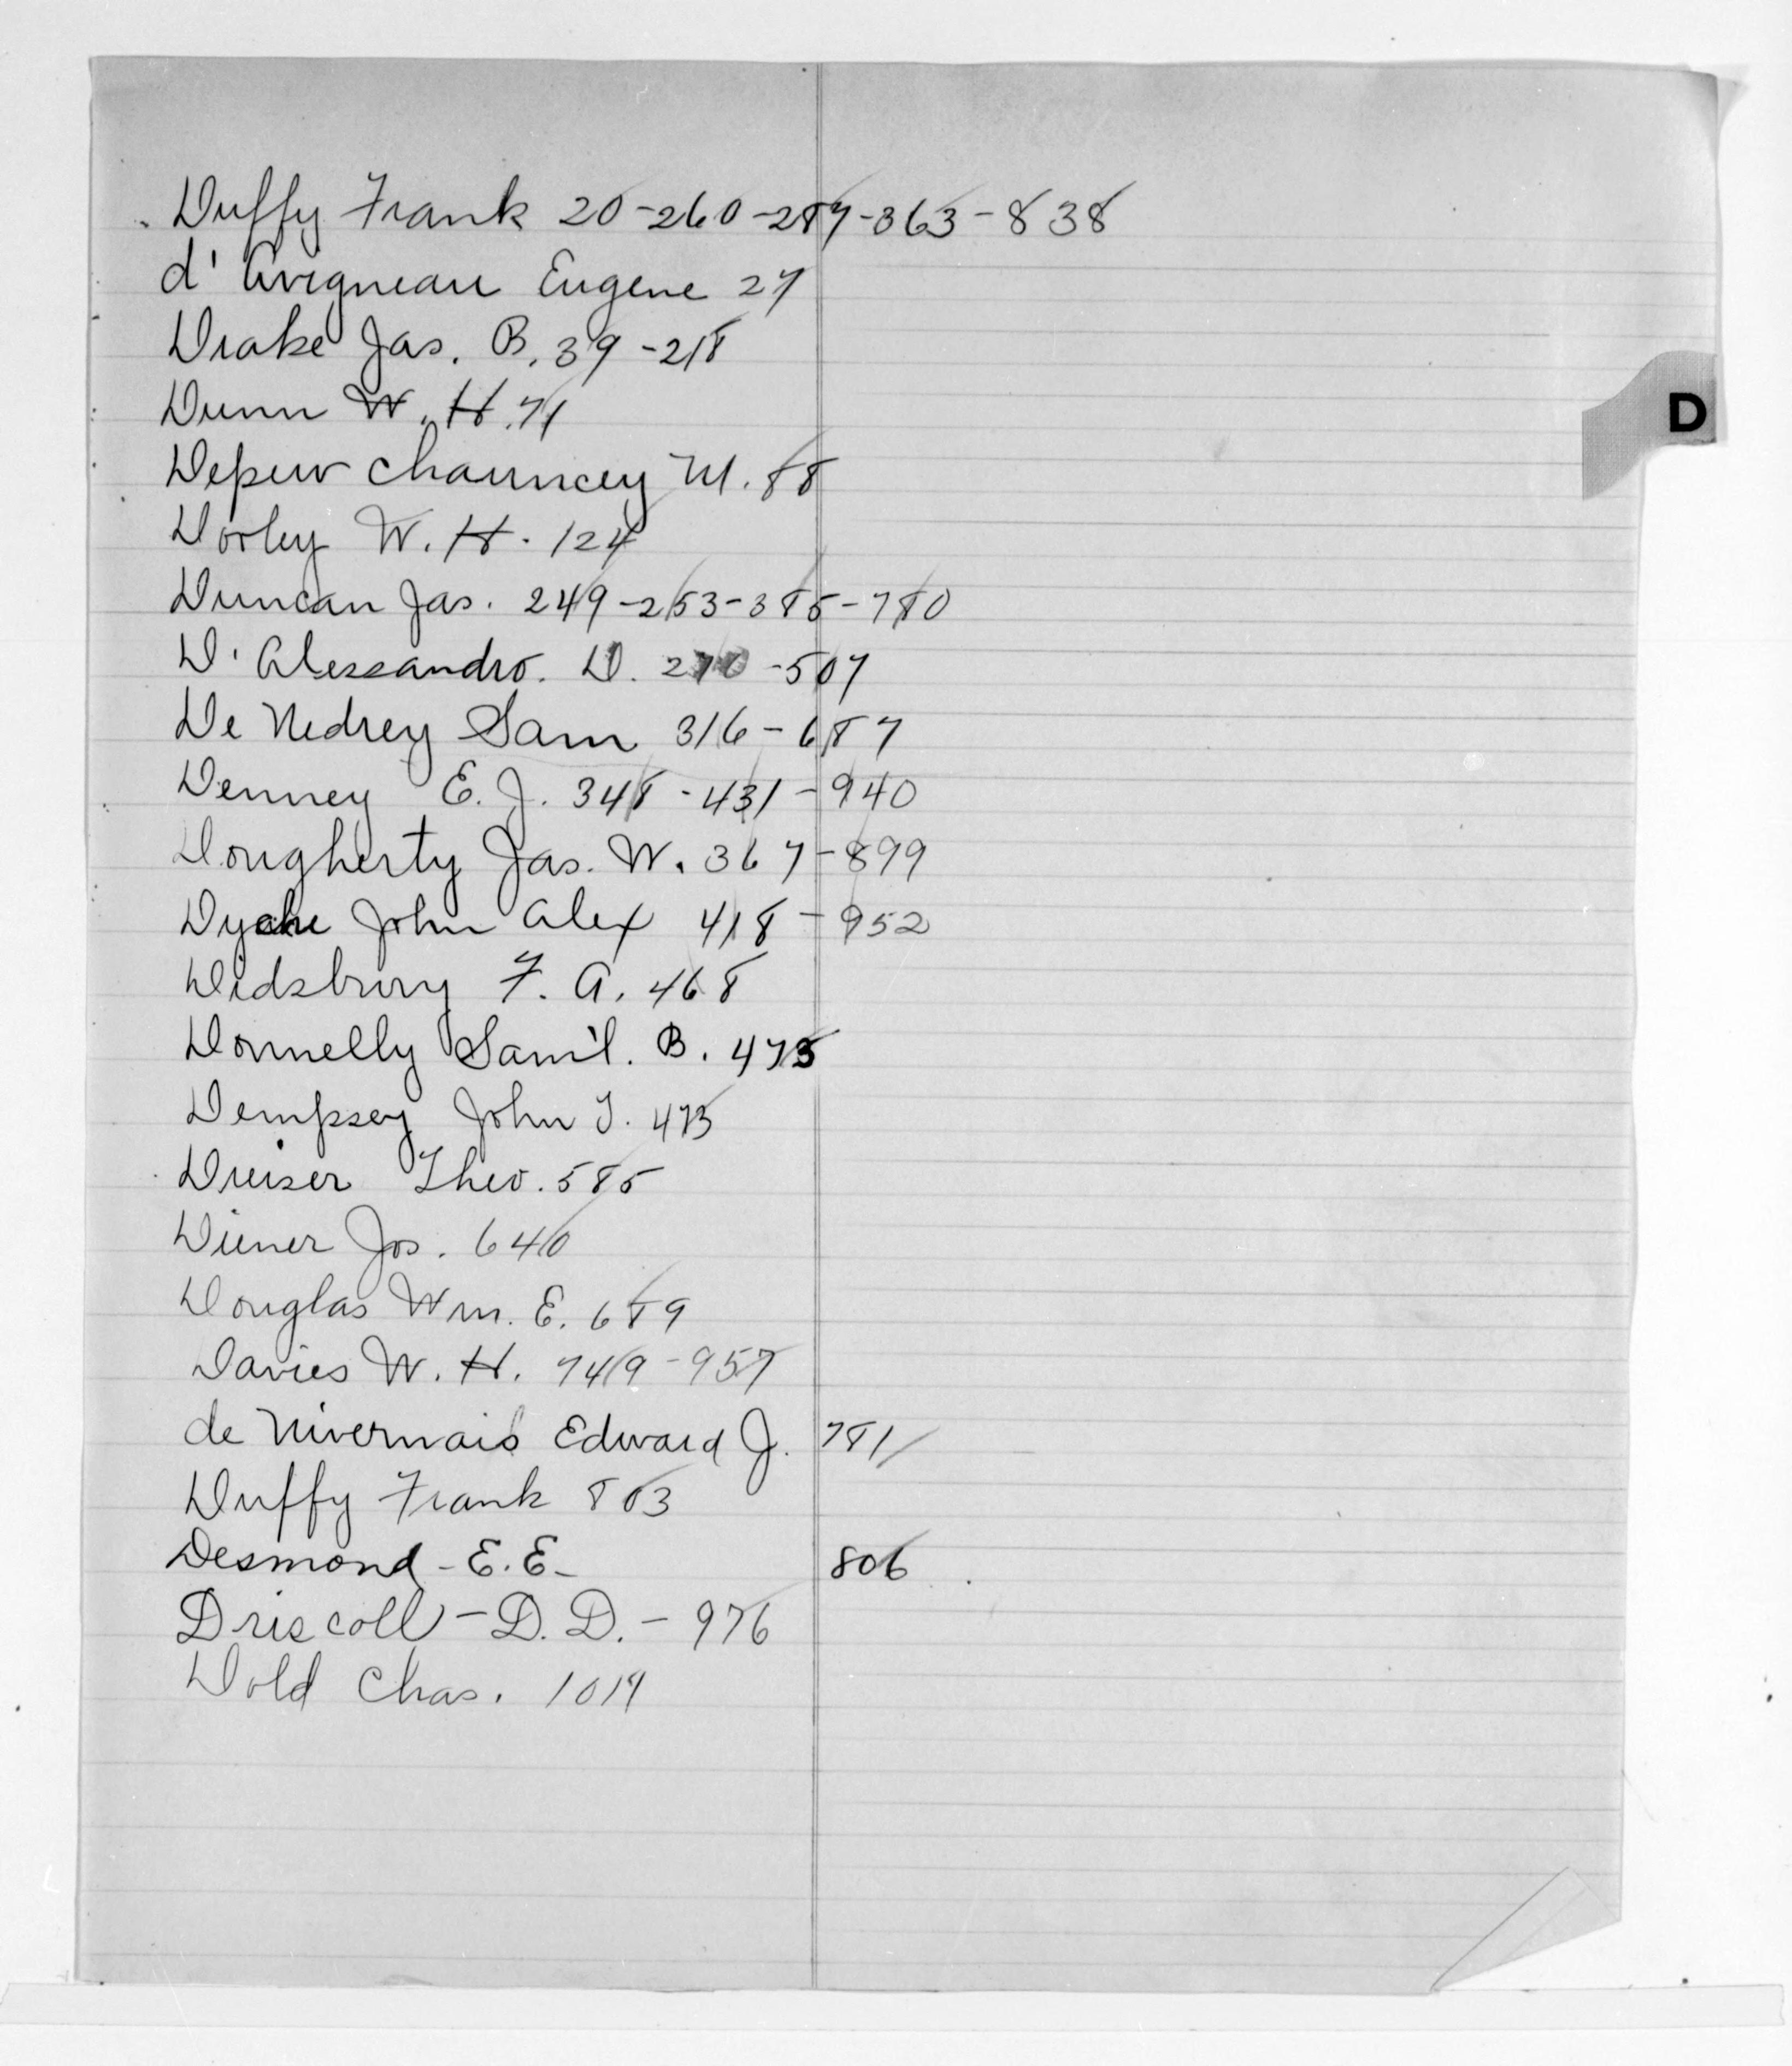 Duffy Frank 20-260-287-363-838
d'Avigneau Eugene 27
Drake Jas. B. 39-218
D
Dunn W. H. 71
Depew Chauncey M. 88
Dorley W. H. 124
Duncan Jas. 249-253-385-780
D'Alessandro. D. 270-507
De Nedrey Sam 316-687
Denney E. J. 348-431-940
Dougherty Jas. W. 367-899
Dyche John Alex 418-952
Didsbury F. A. 468
Donnelly Sam'l. B. 473
Dempsey John T. 473
Dreiser Theo. 585
Diener Jos. 640
Douglas Wm. E. 689
Davies W. H. 749-957
de Nivernais Edward J. 781
Duffy Frank 803
Desmond - E. E- 806
Driscoll - D. D. - 976
Dold Chas. 1019